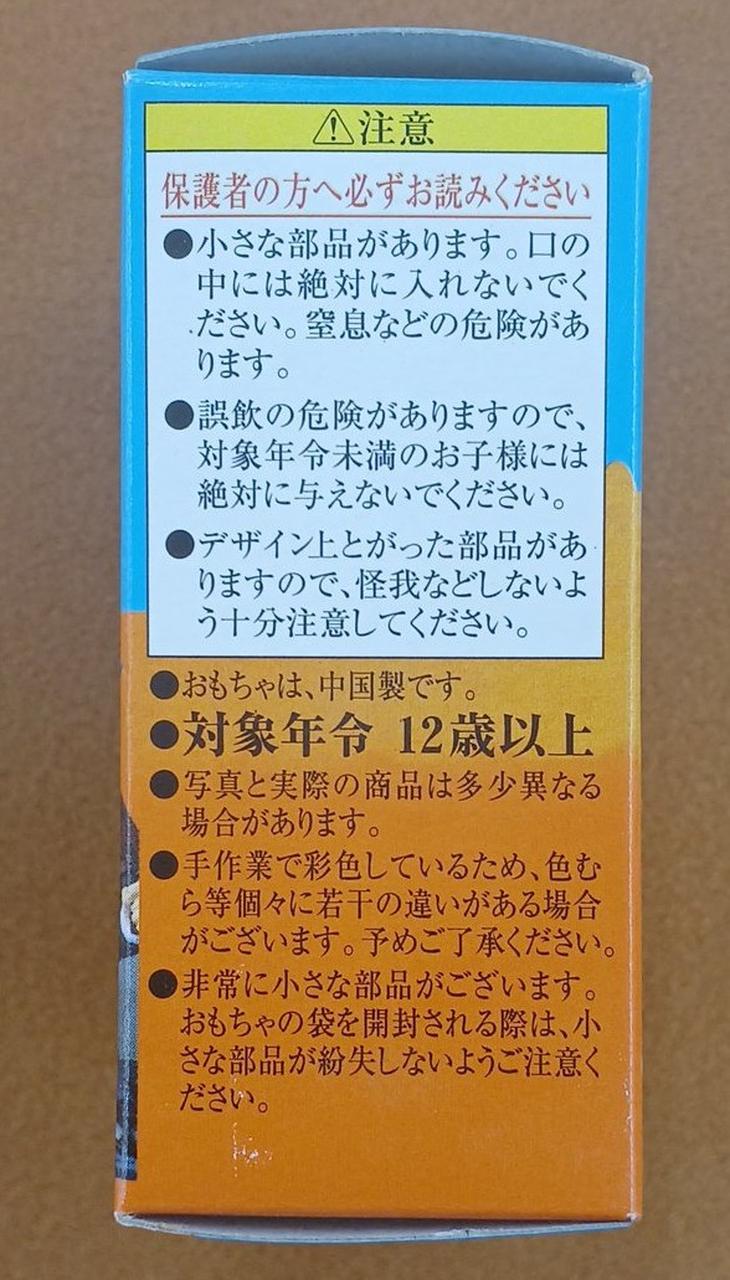 ⚠注意
保護者の方へ必ずお読みください
●小さな部品があります。口の
中には絶対に入れないでく
ださい。窒息などの危険があ
ります。
●誤飲の危険がありますので、
対象年令未満のお子様には
絶対に与えないでください。
●デザイン上とがった部品があ
りますので、怪我などしないよ
う十分注意してください。
●おもちゃは、中国製です。
●対象年令 12歳以上
●写真と実際の商品は多少異なる
場合があります。
●手作業で彩色しているため、色む
ら等個々に若干の違いがある場合
がございます。予めご了承ください。
●非常に小さな部品がございます。
おもちゃの袋を開封される際は、小
さな部品が紛失しないようご注意く
ださい。